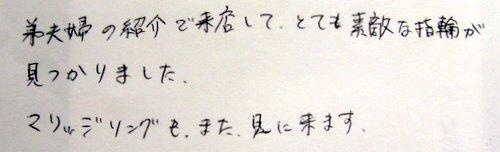 弟夫婦の紹介で来店して、とても素敵な指輪が
見つかりました、
マリッジリングも、また、見に来ます、